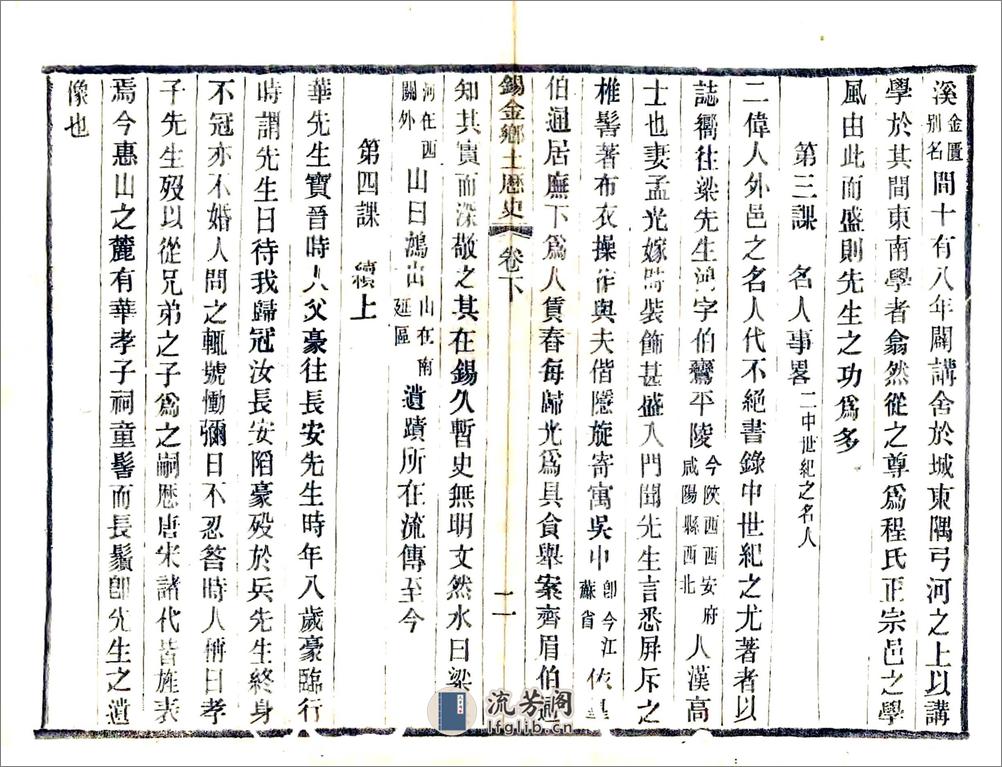 溪金匱别名間十有八年闢講舍於城東隅弓河之上以講
學於其間東南學者翕然從之尊爲程氏正宗邑之學
風由此而盛則先生之功爲多
第三課 名人事畧二中世紀之名人
二偉人外邑之名人代不絕書錄中世紀之尤著者以
誌嚮往梁先生鴻字伯鸞平陵今陝西西安府咸陽縣西北人漢高
士也妻孟光嫁時裝飾甚盛入門聞先生言悉屏斥之
椎髻著布衣操作與夫偕隱旋寄寓吳中卽今江蘇省依皋
伯通居廡下爲人賃舂每歸光爲具食舉案齊眉伯通
錫金鄉土歷史 卷下 二
知其實而深敬之其在錫久暫史無明文然水曰梁
河在西關外山曰鴻山山在南延區遺蹟所在流傳至今
第四課 續上
華先生寶晉時人父豪往長安先生時年八歲豪臨行
時謂先生曰待我歸冠汝長安陷豪歿於兵先生終身
不冠亦不婚人問之輒號慟彌日不忍答時人稱曰孝
子先生歿以從兄弟之子爲之嗣歷唐宋諸代皆旌表
焉今惠山之麓有華孝子祠童髻而長鬚卽先生之遺
像也
流芳阁
lfglib.cn